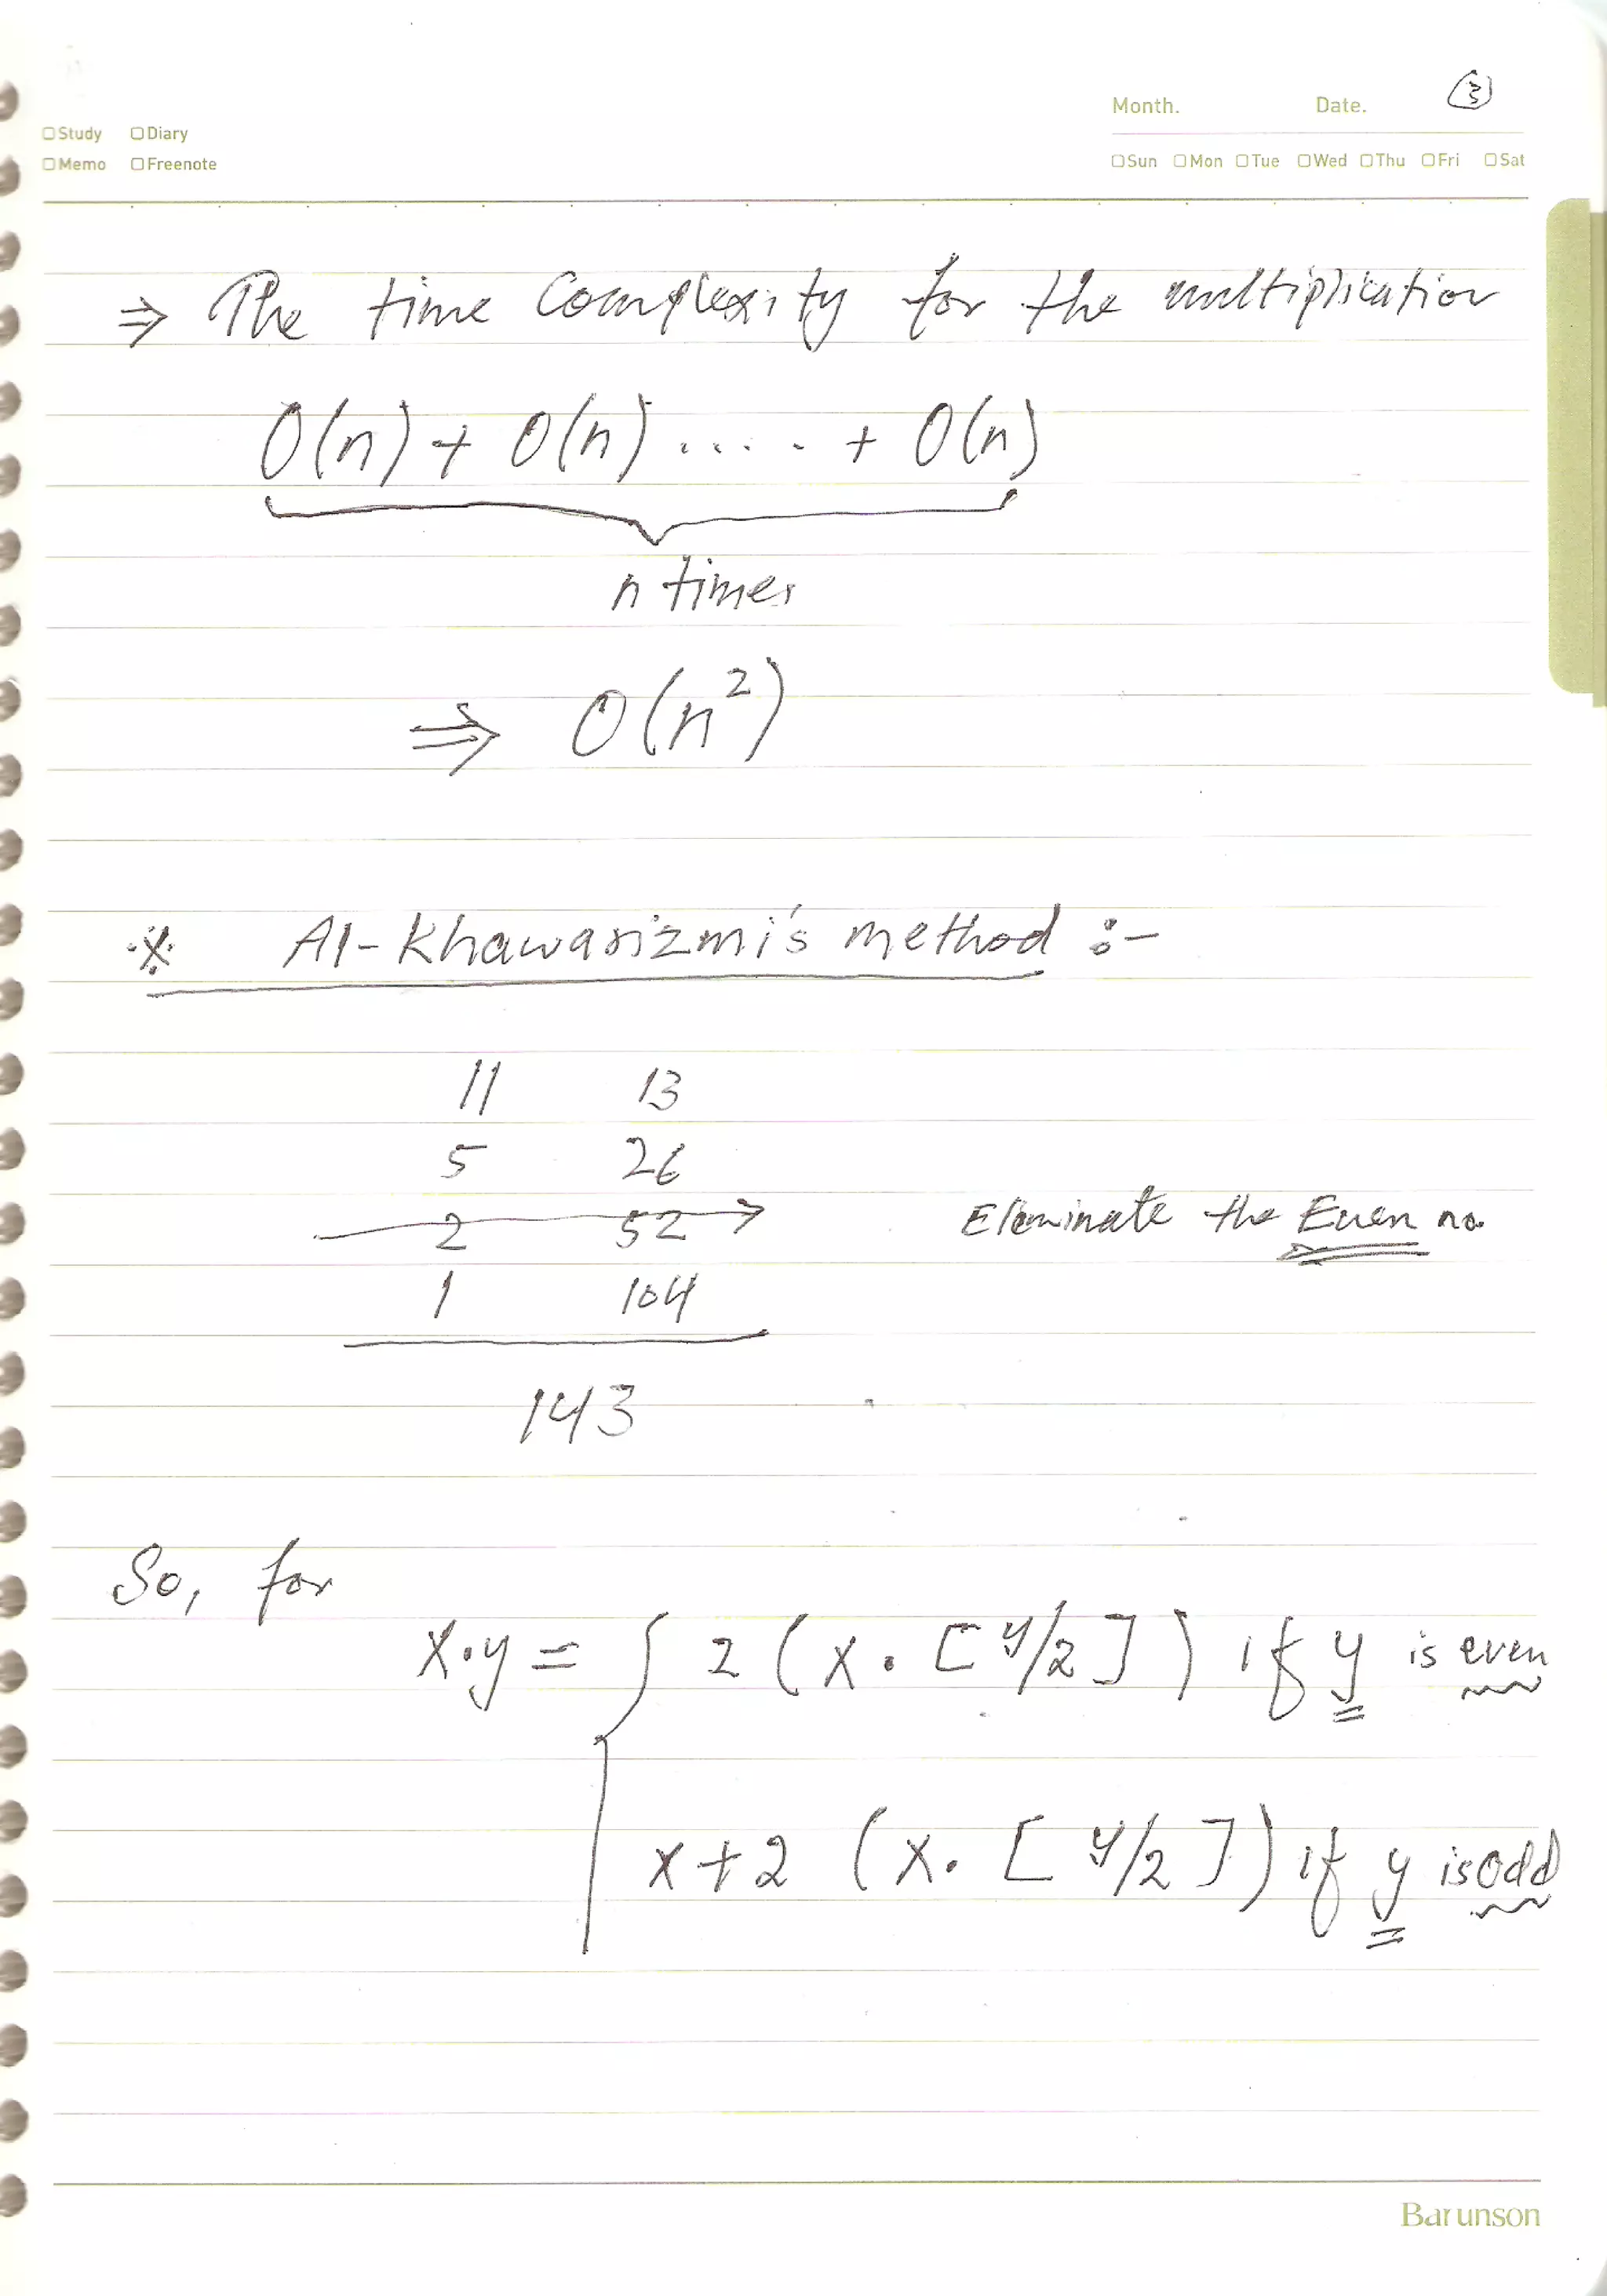 Month. Date. ③
□Study □Diary
□Memo □Freenote
□Sun □Mon □Tue □Wed □Thu □Fri □Sat
⇒ The time Complexity for the multiplication
O(n) + O(n) ..... + O(n)
n times
⇒ O(n²)
※ Al-Khawarizmi's method :-
11 13
5 26
2 52 → Eleminate the Even no.
1 104
143
So, for
x.y = { 2 (x. [y/2]) if y is even
x+2 (x. [y/2]) if y is odd
Barunson